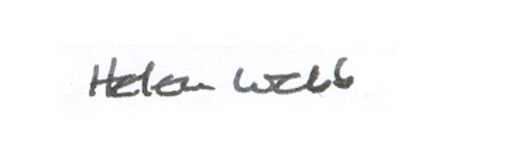 Helen Webb